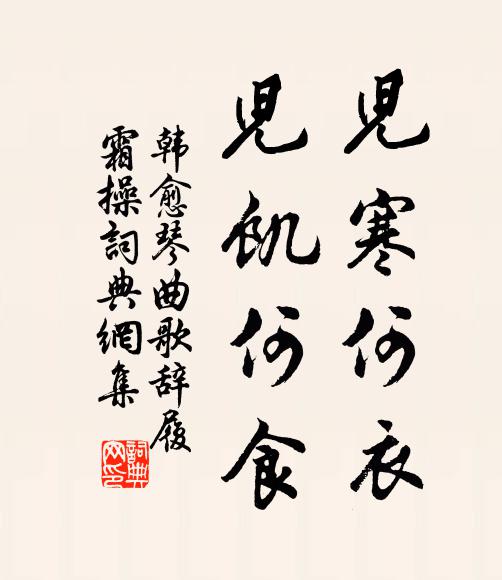 児寒何衣
児飢何食
韩愈琴曲歌辞履
霜操詞典網集
詞典网印